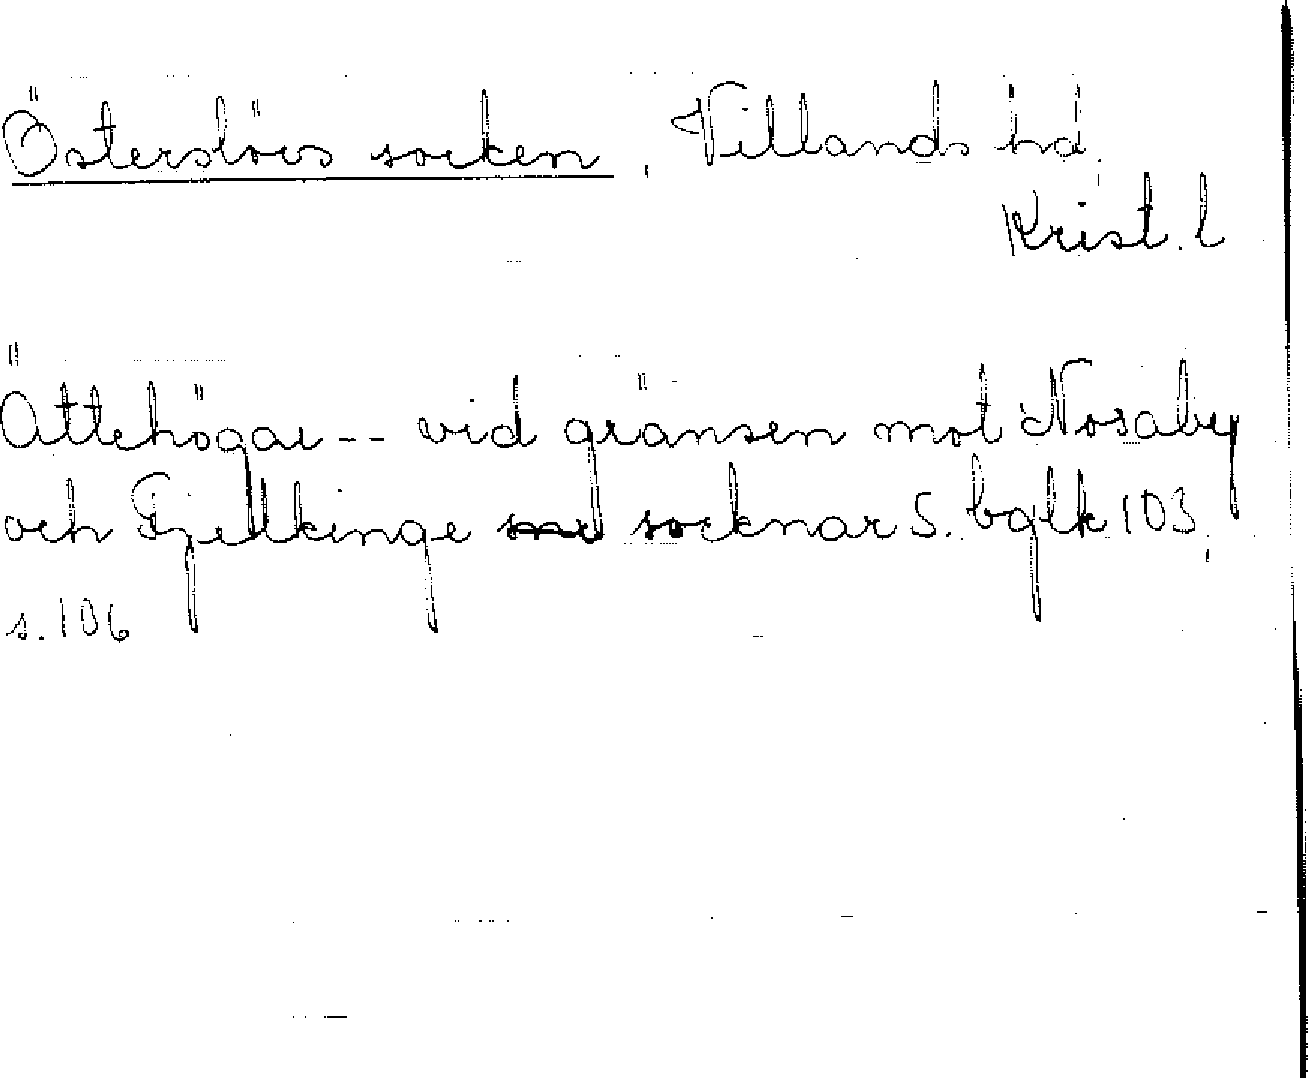 Österslövs socken, Villands hd.
Krist. l
Ättehögar -- vid gränsen mot Nosaby
och Fjelkinge socknar S. bglk 103,
s. 106